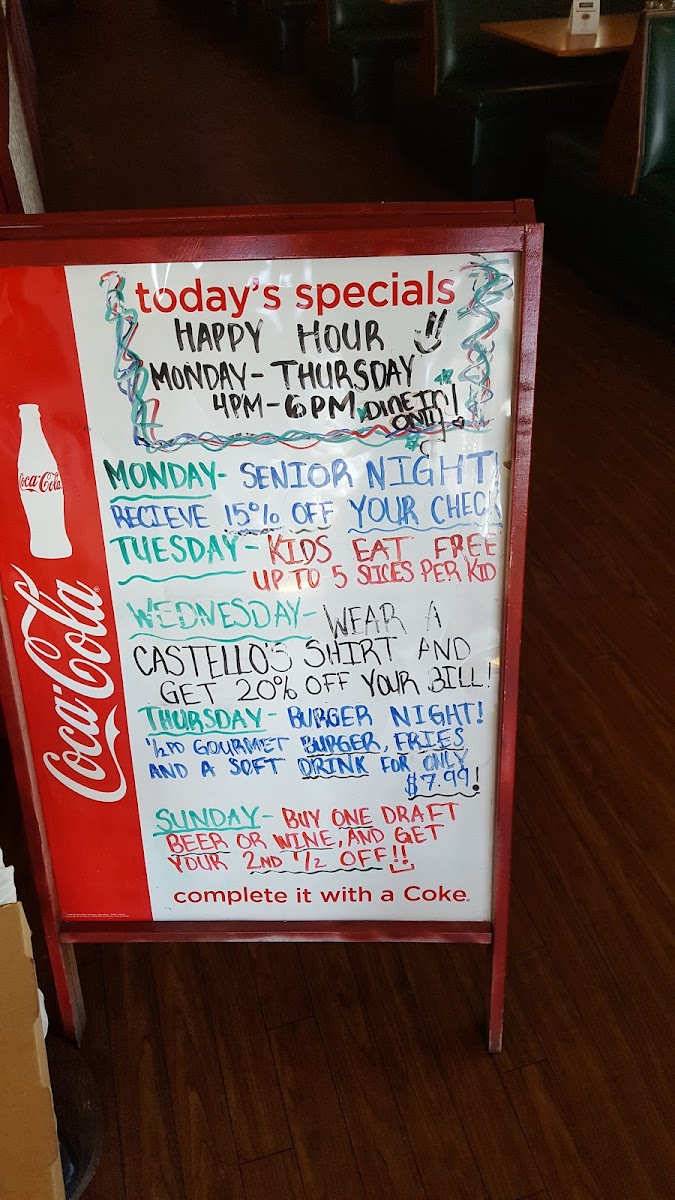 today's specials
HAPPY HOUR
MONDAY - THURSDAY
4PM - 6PM DINE IN
ONLY!
MONDAY - SENIOR NIGHT!
RECIEVE 15% OFF YOUR CHECK
TUESDAY - KIDS EAT FREE
UP TO 5 SLICES PER KID
WEDNESDAY - WEAR A
CASTELLO'S SHIRT AND
GET 20% OFF YOUR BILL!
THURSDAY - BURGER NIGHT!
1/2 PD GOURMET BURGER, FRIES
AND A SOFT DRINK FOR ONLY
$7.99!
SUNDAY - BUY ONE DRAFT
BEER OR WINE, AND GET
YOUR 2ND 1/2 OFF!!
complete it with a Coke.
Coca-Cola
Coca-Cola